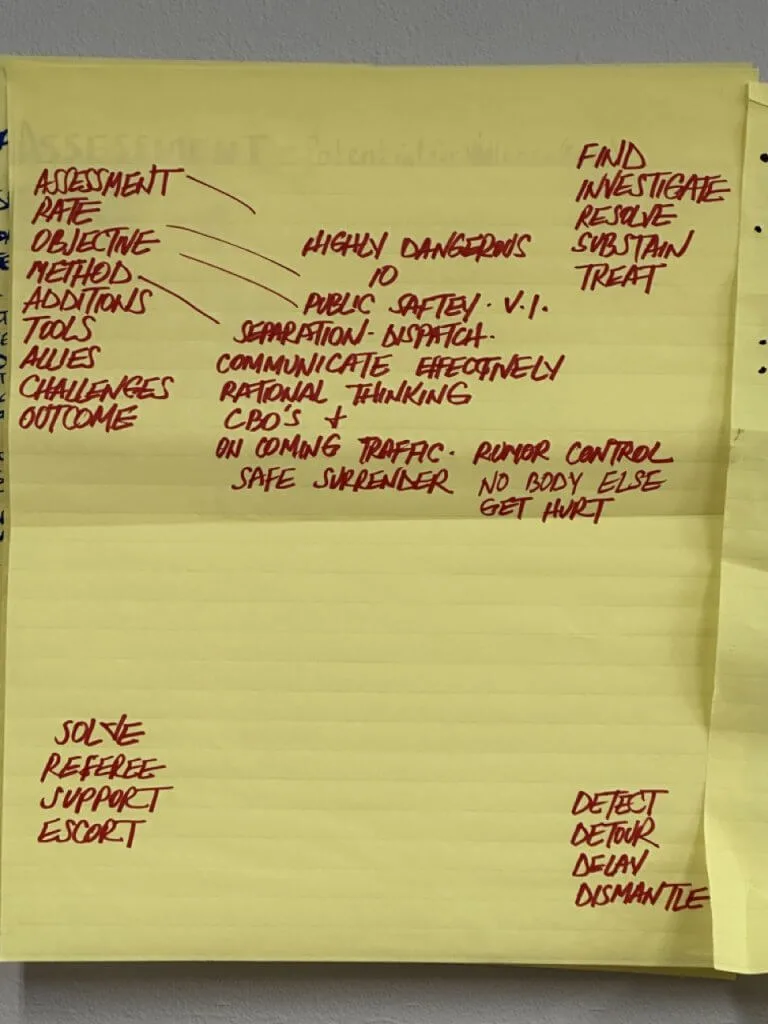 ASSESSMENT
RATE
OBJECTIVE
METHOD
ADDITIONS
TOOLS
ALLIES
CHALLENGES
OUTCOME
HIGHLY DANGEROUS
10
PUBLIC SAFTEY. V.I.
SEPARATION- DISPATCH.
COMMUNICATE EFFECTIVELY
RATIONAL THINKING
CBO'S +
ON COMING TRAFFIC. RUMOR CONTROL
SAFE SURRENDER NO BODY ELSE
GET HURT
FIND
INVESTIGATE
RESOLVE
SUBSTAIN
TREAT
SOLVE
REFEREE
SUPPORT
ESCORT
DETECT
DETOUR
DELAY
DISMANTLE
ASSESSMENT